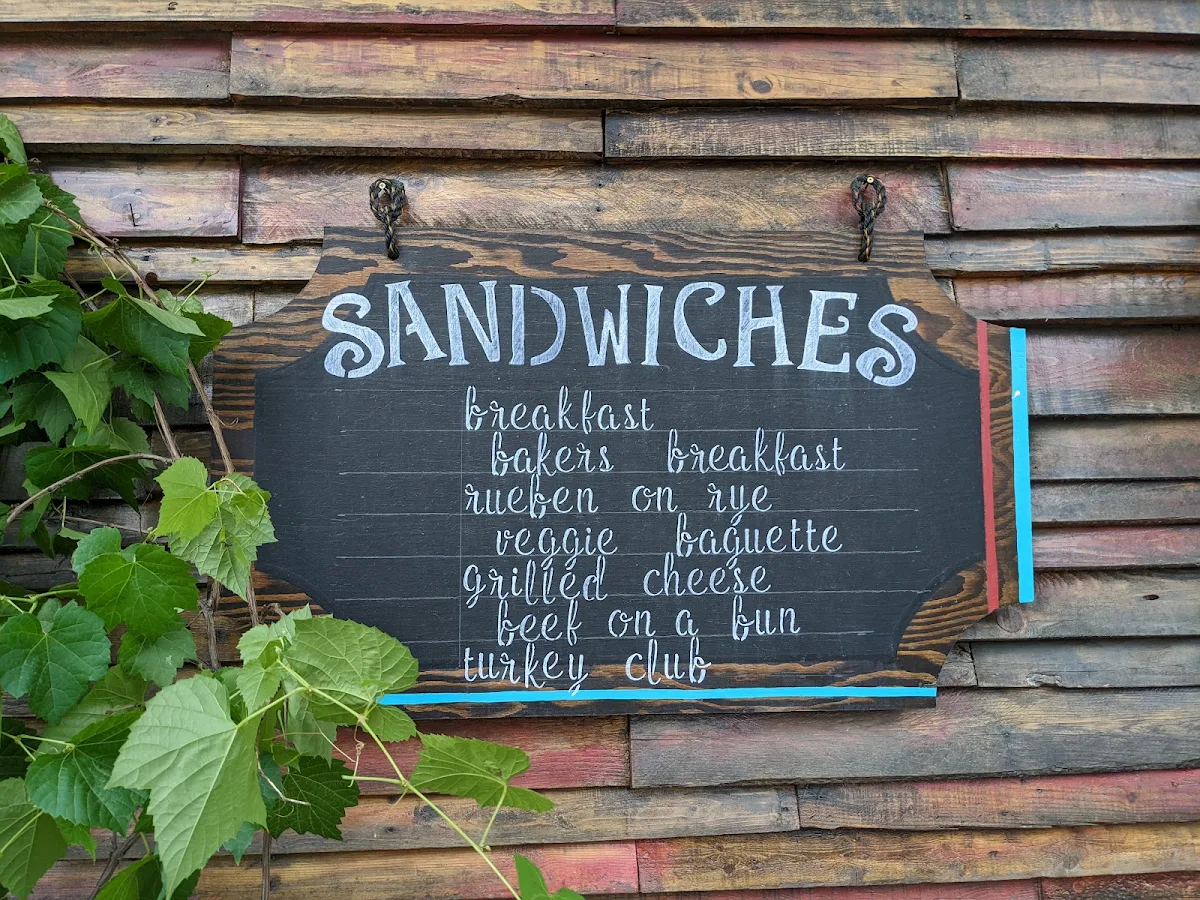 SANDWICHES
breakfast
bakers breakfast
rueben on rye
veggie baguette
grilled cheese
beef on a bun
turkey club